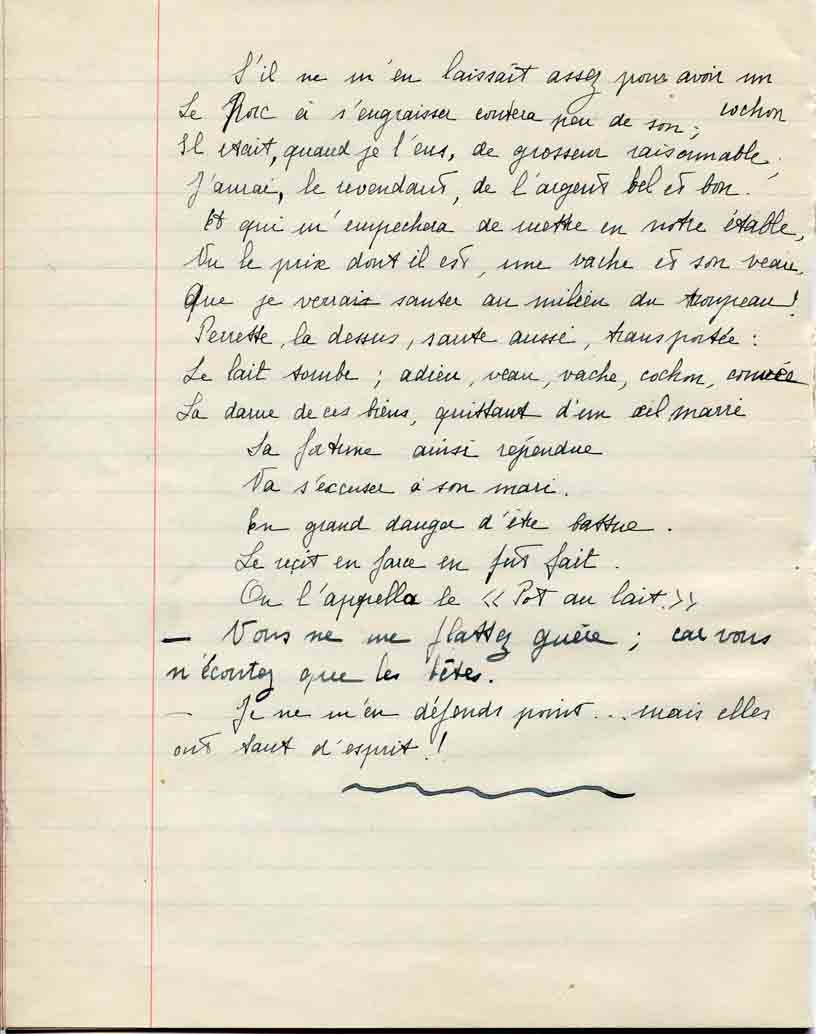 S'il ne m'en laissait assez pour avoir un
cochon
Le Porc à s'engraisser coutera peu de son ;
Il était, quand je l'eus, de grosseur raisonnable ;
J'aurai, le revendant, de l'argent bel et bon.
Et qui m'empechera de mettre en notre étable,
Vu le prix dont il est, une vache et son veau,
Que je verrais sauter au milieu du troupeau !
Perrette, la dessus, saute aussi, transportée :
Le lait tombe ; adieu, veau, vache, cochon, couvée
La dame de ces biens, quittant d'un œil marri
Sa fortune ainsi répendue
Va s'excuser à son mari.
En grand danger d'être battue.
Le reçit en farce en fut fait.
On l'appella le « Pot au lait. »
— Vous ne me flattez guère ; car vous
n'écoutez que les bêtes.
— Je ne m'en défends point... mais elles
ont tant d'esprit !